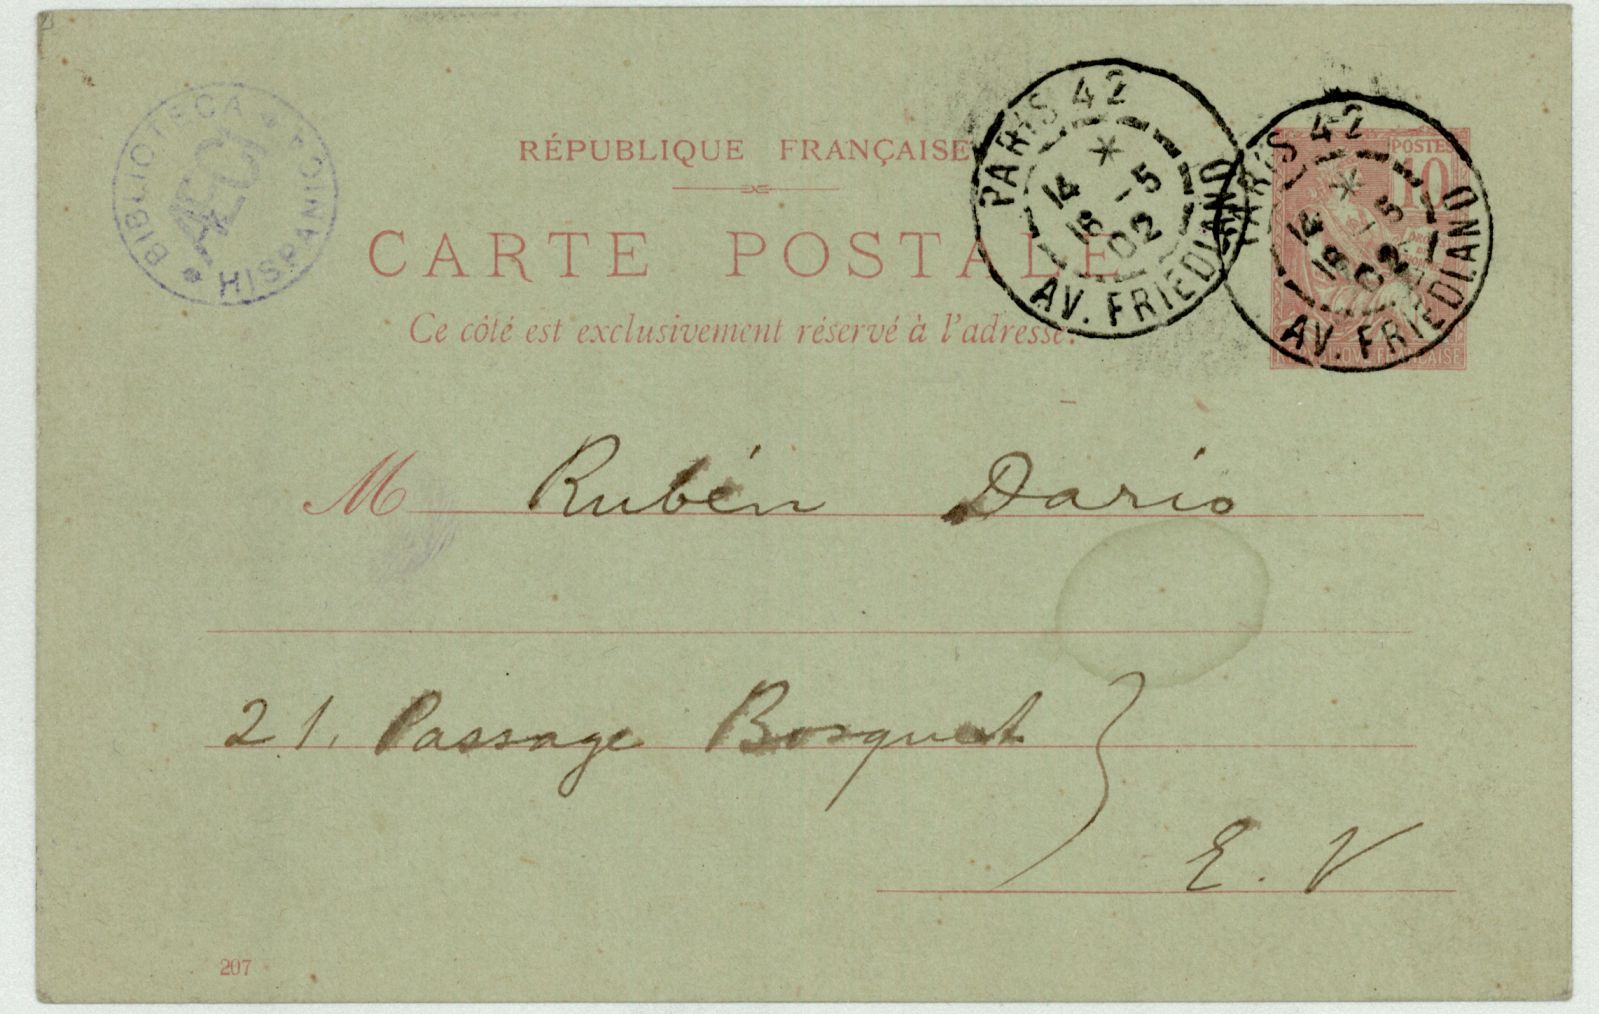 BIBLIOTECA HISPANICA
AECI
RÉPUBLIQUE FRANÇAISE
CARTE POSTALE
Ce côté est exclusivement réservé à l'adresse.
PARIS 42
14
16 -5
02
AV. FRIEDLAND
PARIS 42
14
16 -5
02
AV. FRIEDLAND
POSTES
10
M Rubén Dario
21. Passage Bosquet
E. V
207